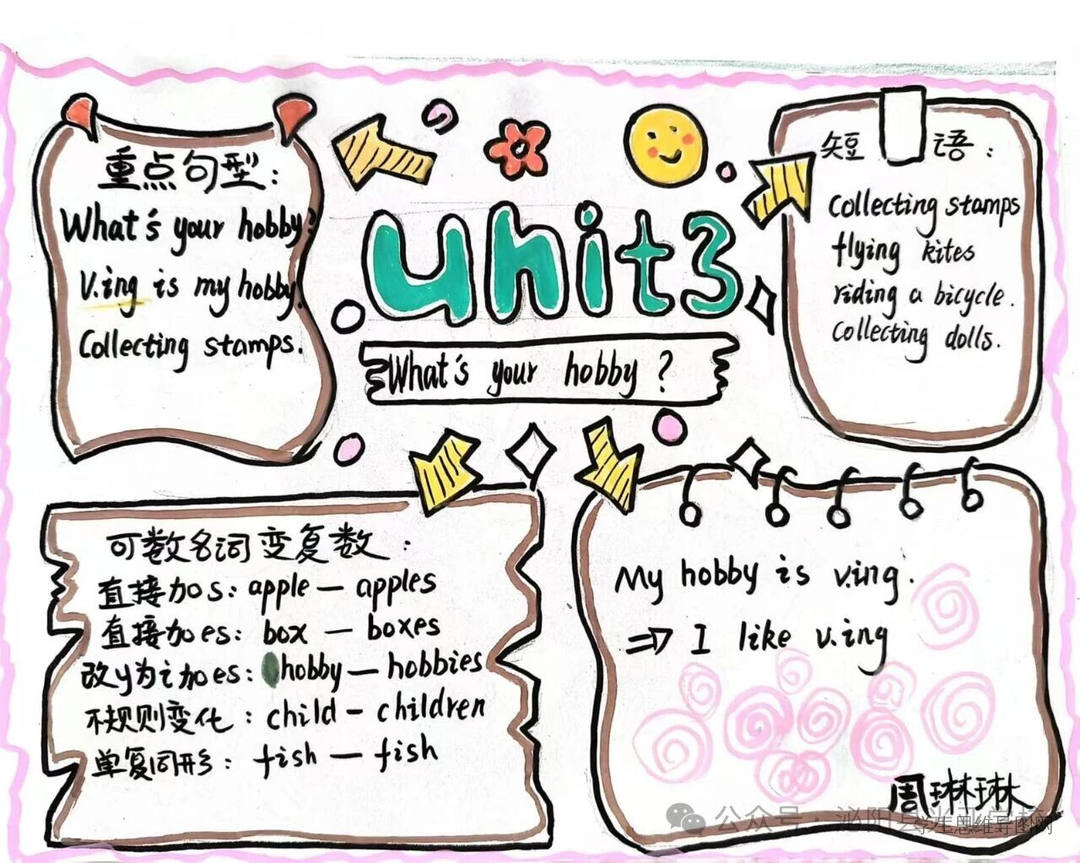 重点句型：
What's your hobby?
V.ing is my hobby.
Collecting stamps.
unit3
What's your hobby ?
短语：
Collecting stamps
flying kites
riding a bicycle.
Collecting dolls.
可数名词变复数：
直接加s：apple — apples
直接加es：box — boxes
改y为i加es：hobby — hobbies
不规则变化：child — children
单复同形：fish — fish
My hobby is v.ing.
⇒ I like v.ing
周琳琳
公众号 · 泌阳县
学生思维导图网